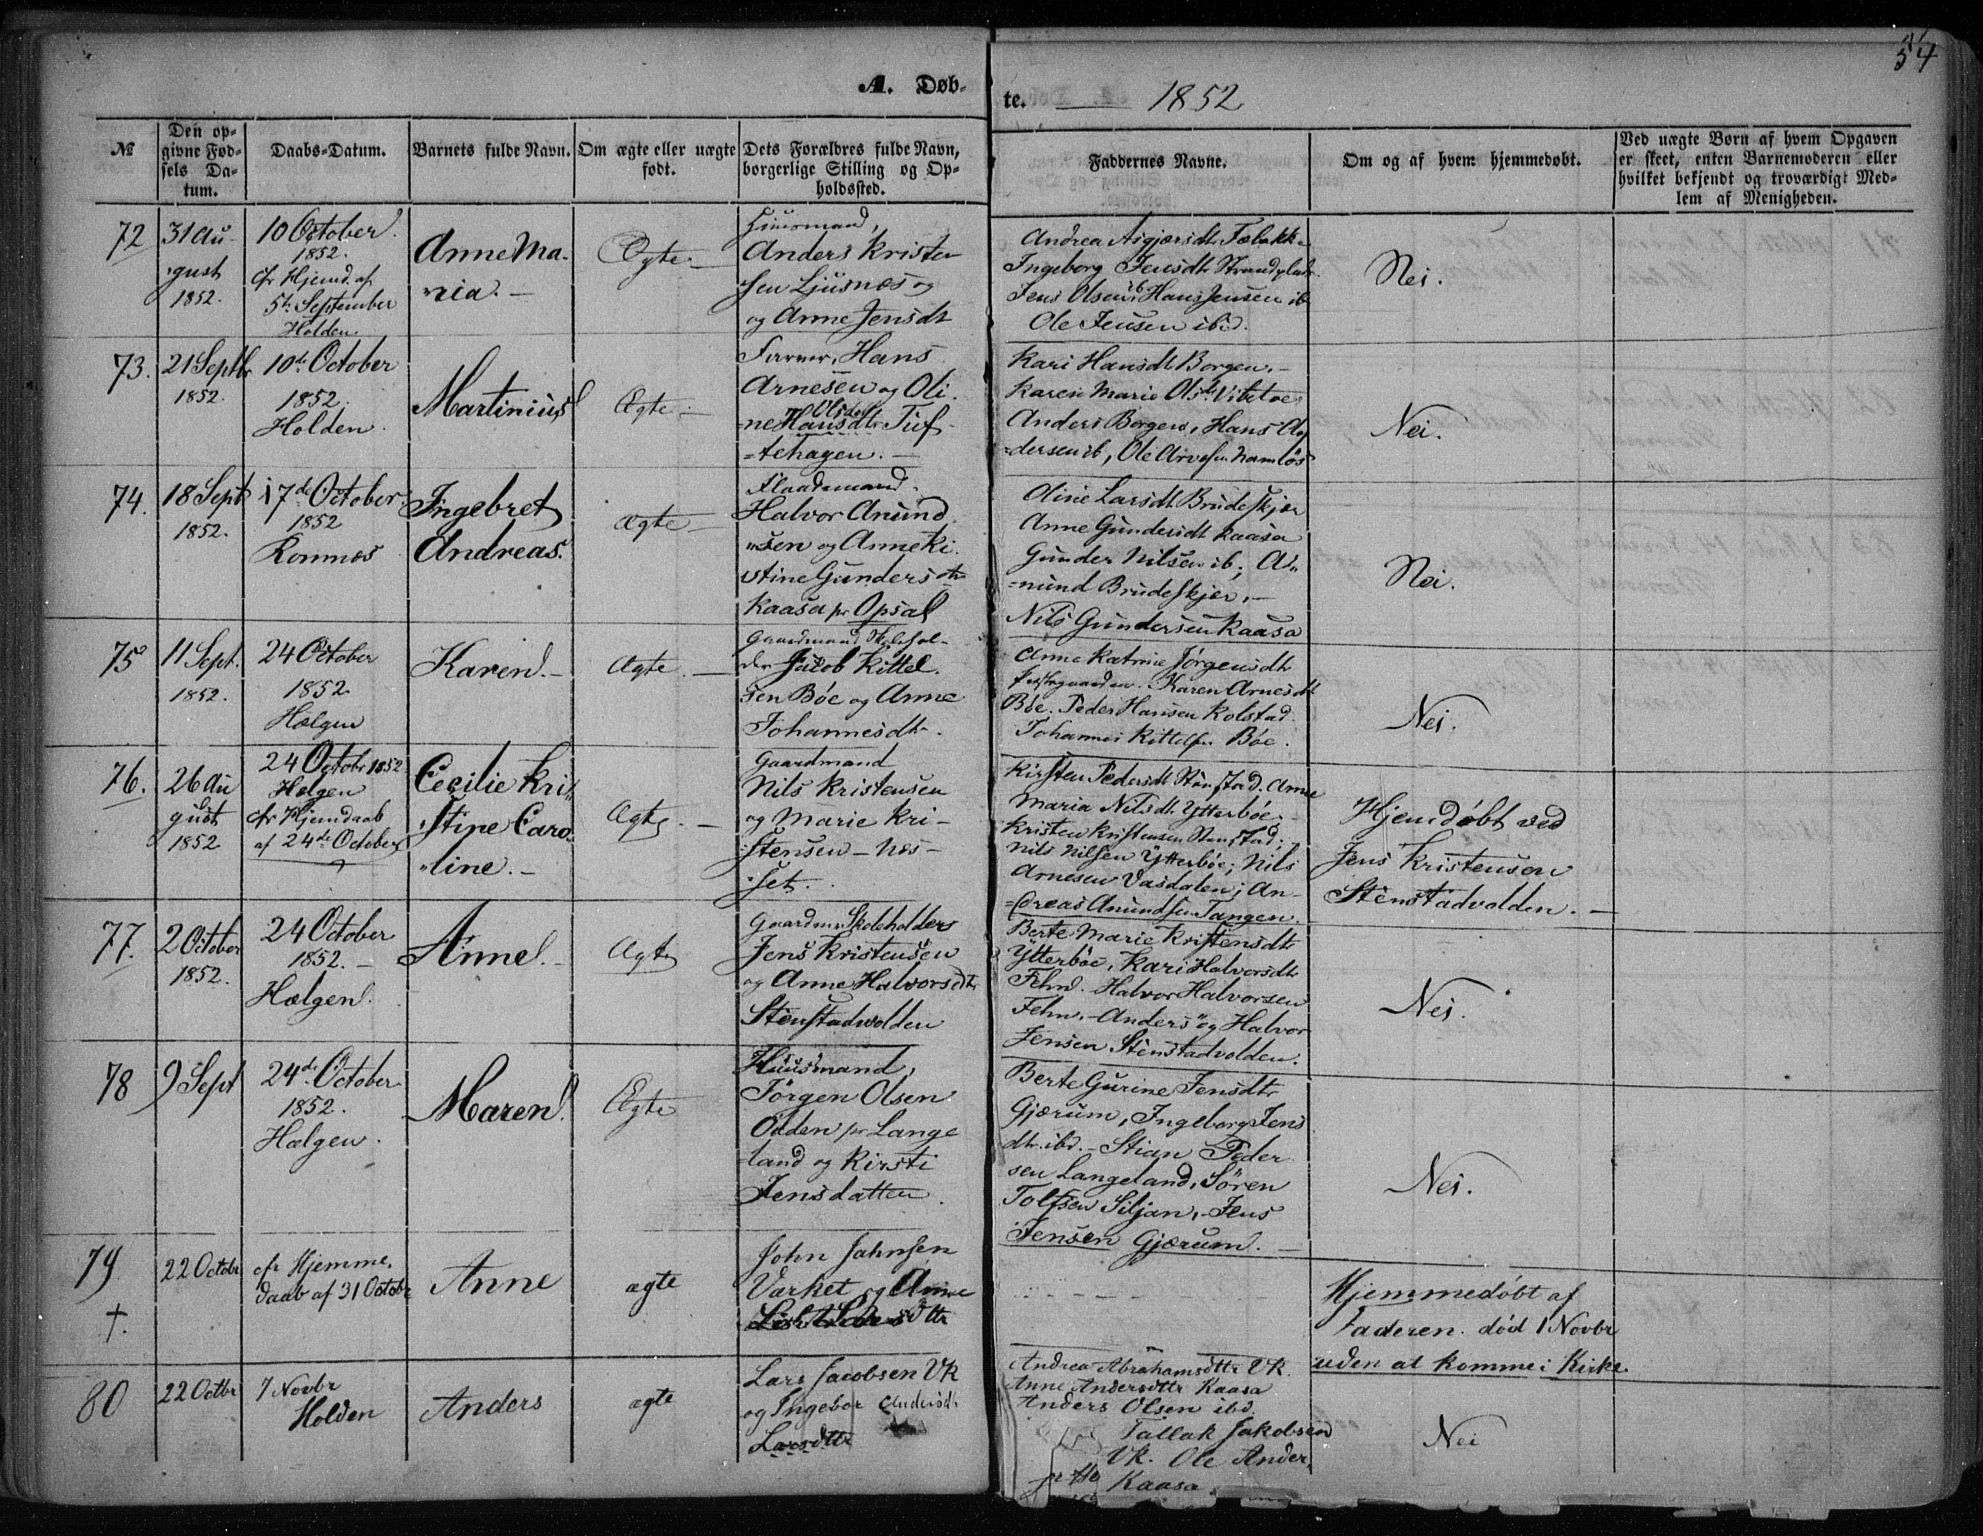 54
A. Døb-
te. 1852
№
Den op-
givne Fød-
sels Da-
tum.
Daabs-Datum.
Barnets fulde Navn.
Om ægte eller uægte
født.
Dets Forældres fulde Navn,
borgerlige Stilling og Op-
holdssted.
Faddernes Navne.
Om og af hvem hjemmedøbt.
Ved uægte Børn af hvem Opgaven
er skeet, enten Barnemoderen eller
hvilket bekjendt og troværdigt Med-
lem af Menigheden.
72
31 Au-
gust
1852.
10 October
1852.
cfr Hjemd. af
5te September
Holden.
Anne Ma-
ria. -
Ægte. -
Huusmand,
Anders Kristen
sen Ljusnæs og
og Anne Jensdt
Andrea Asgjersdt.
Ingeborg Jensdt
Jens Olsen ib, Hans Jensen ib
Ole Jensen ibd.
Nei.
73.
21 Septbr
1852.
10de October
1852.
Holden.
Martinius
Ægte. -
Hans
Arnesen og Oli-
=ne Hansdtr Tuf-
Olsdtr
=tehagen. -
Kari Hansdt Borgen. -
Karen Marie Olsdt Vibetoe
Anders Borgen, Hans An
=dersen ib, Ole Namløs
Nei.
74.
18 Sept
1852.
17de October
1852
Romnæs
Ingebret
Andreas.
Ægte -
Plaadsmand.
Halvor Anund
sen og Anne Ki-
stine Gundersdtr
Kaasa pr Opsal
Oline Larsdt Brudeskjær
Anne Gundersdt Kaasa
Gunder Nilsen ib; A-
=nund Brudeskjer, -
Nils Gundersen Kaasa
Nei.
75
11 Sept.
1852.
24 October
1852.
Hælgen
Karen. -
Ægte. -
Gaardmand Skolehol-
der Jacob Kittel-
sen Bøe og Anne
Johannesdtr.
Anne Katrine Jørgensdt
Karen Arnesdt
Bøe. Peder Hansen Kolstad.
Johannes Kittelsen Bøe.
Nei.
76.
26 Au
gust
1852
24 Octobr 1852
Hælgen
cfr Hjemdaab
af 24de October
Cecilie Kri-
stine Caro-
line. -
Ægte. -
Gaardmand
Nils Kristensen
og Marie Kri-
stensen - Næs-
set.
Kirsten Pedersdt Stenstad. Anne
Maria Nilsdt Ytterbøe.
Kristen Kristensen Stenstad;
Nils Nilsen Ytterbøe; Nils
Arnesen Vasdalen; An-
=dreas Anundsen Tangen.
Hjemdøbt ved
Jens Kristensen
Stenstadvolden. -
77.
2 October
1852.
24 October
1852. -
Hælgen.
Anne. -
Ægte
Gaardm. Skoleholder
Jens Kristensen
og Anne Halvorsdtr
Stenstadvolden
Berte Marie Kristensdt
Ytterbøe, Kari Halvorsdtr
Fehn. Halvor Halvorsen
Fehn. - Anders og Halvor
Jensen Stenstadvolden.
Nei.
78
9 Sept
24de October
1852.
Hælgen.
Maren.
Ægte
Huusmand,
Jørgen Olsen
Odden pr Lange
land og Kirsti
Jensdatter.
Berte Gurine Jensdtr
Gjærum, Ingeborg Jens
dtr. ibd. - Stian Peder
sen Langeland, Sören
Tolfsen Siljan, - Jens
Jensen Gjærum. -
Nei.
79
†.
22 Octobr
cfr Hjemme,
daab af 31 Octobr
Anne
ægte
John Jahnsen
Varket og Anne
Hjemmedøbt af
Faderen. død 1 Novbr
uden at komme i Kirke.
80
22 Octbr
7 Novbr
Holden
Anders
ægte
Lars Jacobsen Vk
og Ingebor Andersdtr
Larsdttr
Andrea Abrahamsdttr Vk.
Anne Andersdttr Kaasa
Anders Olsen ibd.
Tallak Jakobsen
Vk. Ole Ander,
Kaasa
Nei